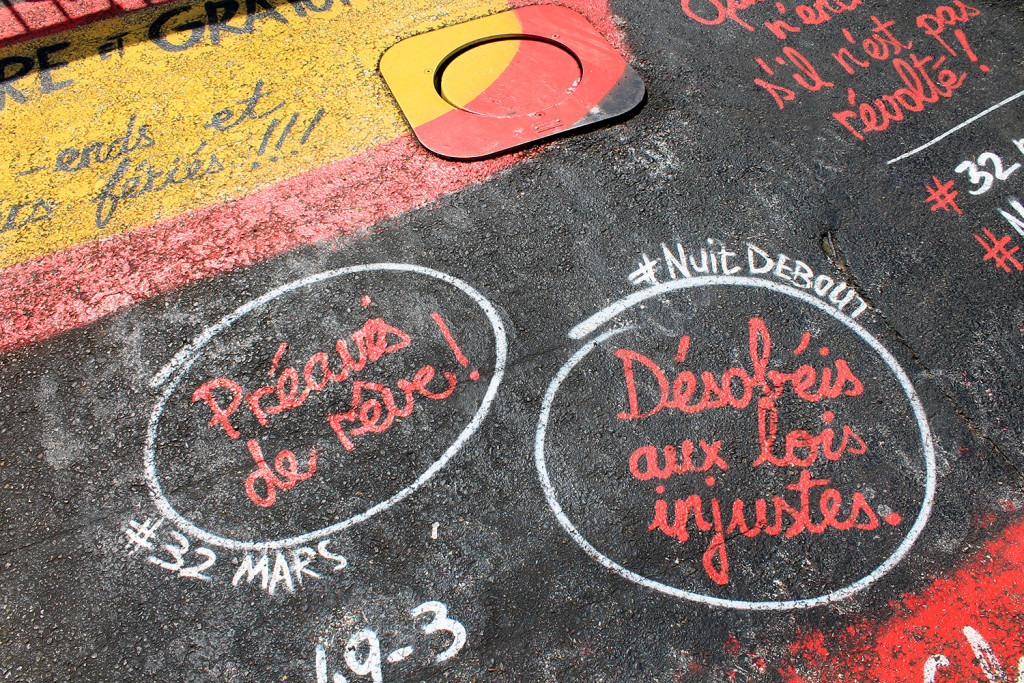 RE et GRATUI
ends et
fériés !!!
n'en
s'il n'est pas
révolté !
#32
#N
#NUIT DEBOUT
Préavis
de rêve !
#32 MARS
Désobéis
aux lois
injustes.
1.9-3